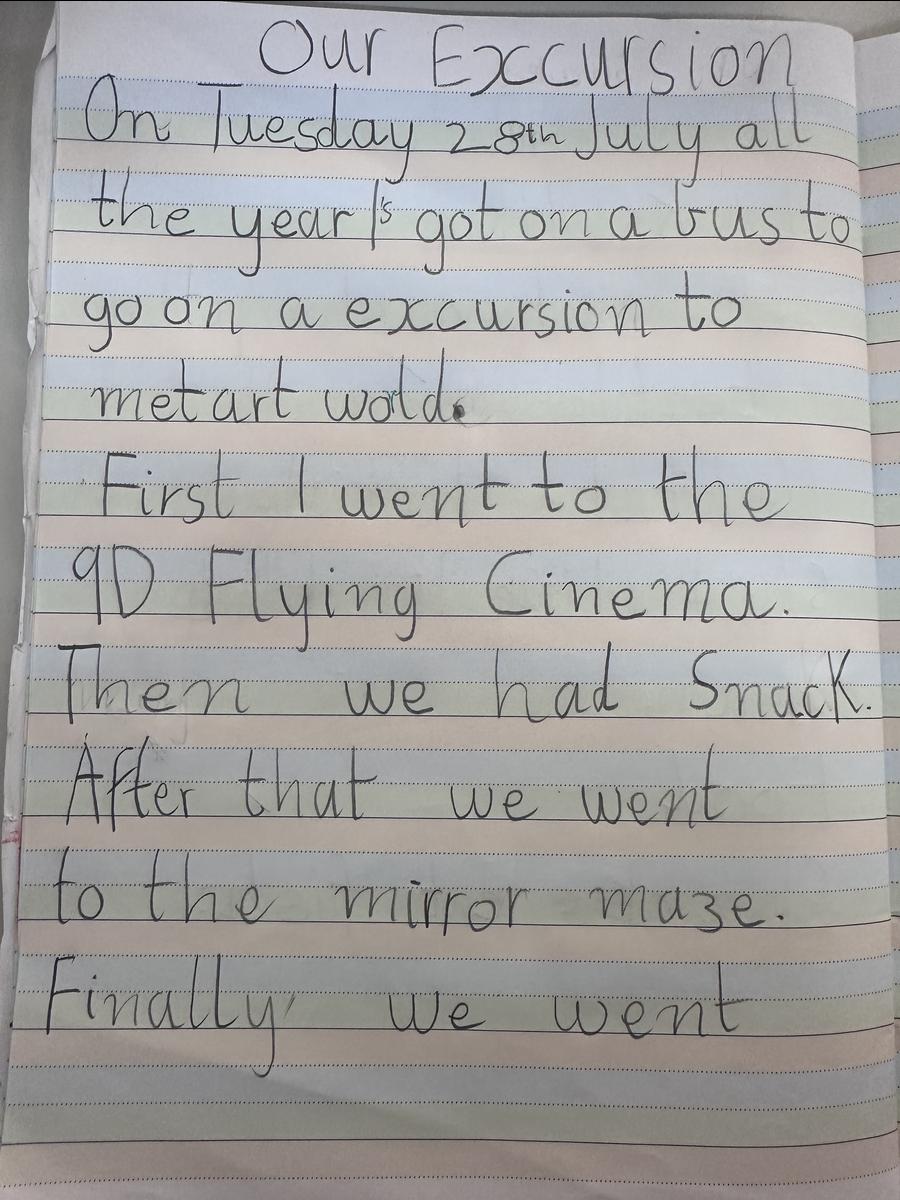 Our Exccursion
On Tuesday 28th July all
the year 1's got on a bus to
go on a excursion to
metart wold.
First I went to the
9D Flying Cinema.
Then we had Snack.
After that we went
to the mirror maze.
Finally we went